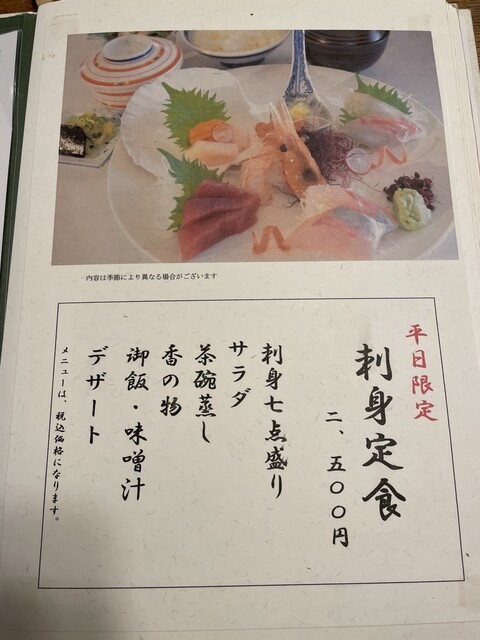 内容は季節により異なる場合がございます
平日限定
刺身定食
二、五００円
刺身七点盛り
サラダ
茶碗蒸し
香の物
御飯・味噌汁
デザート
メニューは、税込価格になります。